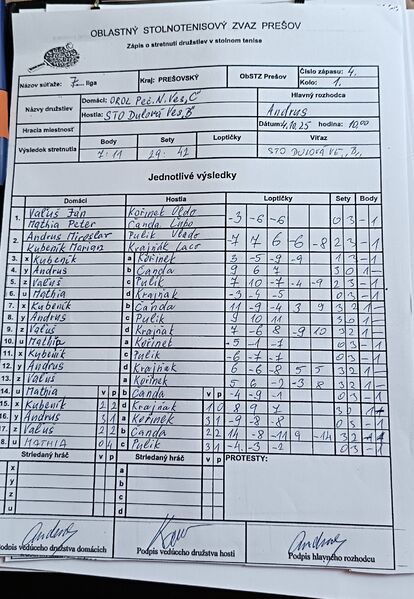 OBLASTNÝ STOLNOTENISOVÝ ZVÄZ PREŠOV
Zápis o stretnutí družstiev v stolnom tenise
Názov súťaže: 7. liga Kraj: PREŠOVSKÝ ObSTZ Prešov Číslo zápasu: 4. Kolo: 1.
Názvy družstiev Domáci: OROL Peč. N. Ves „C" Hlavný rozhodca
Hostia: STO Dulová Ves „B" Andrus
Hracia miestnosť Dátum: 4.10.25 hodina: 10,00
Body Sety Loptičky Víťaz
Výsledok stretnutia 7:11 29:42 STO DULOVÁ VES „B"
Jednotlivé výsledky
Domáci Hostia Loptičky Sety Body
1. Vaľuš Ján Kořínek Vlado -3 -6 -6 0 3 - 1
Mathia Peter Čanda Ľubo
2. Andrus Miroslav Pulik Vlado -7 7 6 -6 -8 2 3 - 1
Kubeník Marian Krajňák Laco
3. x Kubeník a Kořínek 3 -5 -9 -9 1 3 - 1
4. y Andrus b Čanda 9 6 7 3 0 1 -
5. z Vaľuš c Pulik -7 10 -7 -4 -9 2 3 - 1
6. u Mathia d Krajňák -3 -5 -5 0 3 - 1
7. x Kubeník b Čanda 11 -9 -4 3 9 3 2 1 -
8. y Andrus c Pulik 9 10 11 3 0 1 -
9. z Vaľuš d Krajňák 7 -6 8 -9 10 3 2 1 -
10. u Mathia a Kořínek -5 -1 -7 0 3 - 1
11. x Kubeník c Pulik -6 -7 -7 0 3 - 1
12. y Andrus d Krajňák -6 -6 8 5 5 3 2 1 -
13. z Vaľuš a Kořínek 5 6 -2 -3 8 3 2 1 -
14. u Mathia v p b Čanda v p -4 -9 -1 0 3 - 1
15. x Kubeník 2 2 d Krajňák 1 0 8 9 7 3 0 1
16. y Andrus 3 1 a Kořínek 3 1 -9 -8 -8 0 3 - 1
17. z Vaľuš 2 2 b Čanda 2 2 14 -8 -11 9 -14
18. u MATHIA 0 4 c Pulik 3 1 -4 -3 -2 0 3 - 1
Striedaný hráč v p Striedaný hráč v p PROTESTY:
x a
y b
z c
u d
Podpis vedúceho družstva domácich Podpis vedúceho družstva hostí Podpis hlavného rozhodcu